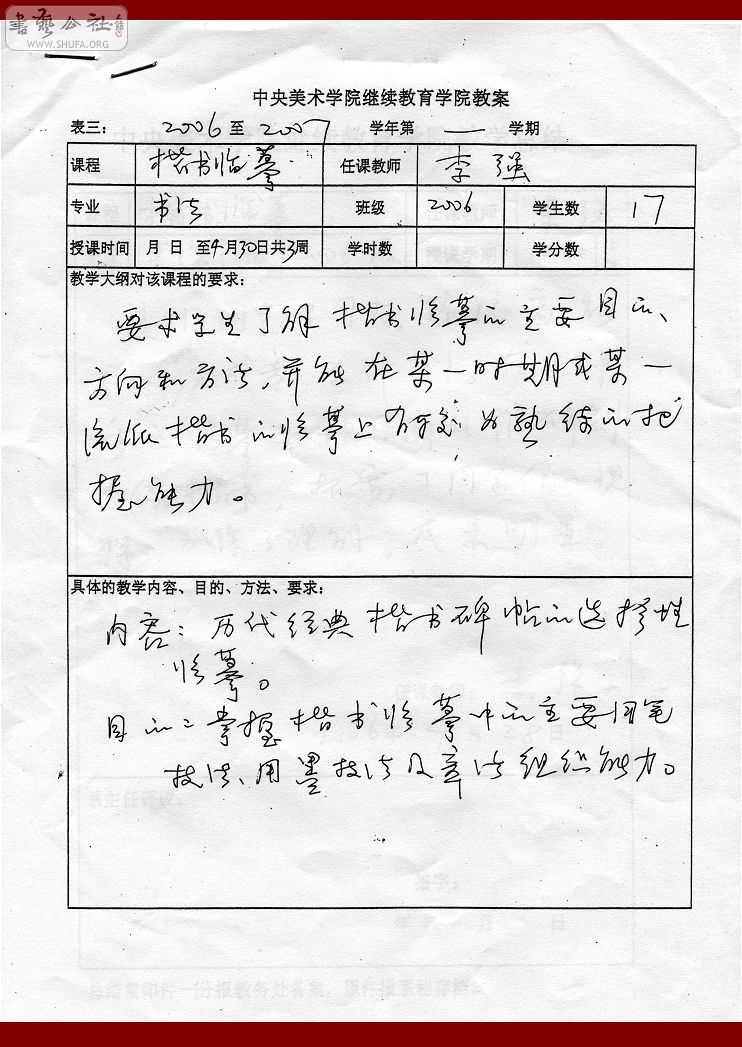 書藝公社
WWW.SHUFA.ORG
中央美术学院继续教育学院教案
表三： 2006 至 2007 学年第 一 学期
课程 楷书临摹 任课教师 李强
专业 书法 班级 2006 学生数 17
授课时间 月 日 至4月30日共3周 学时数 学分数
教学大纲对该课程的要求：
要求学生了解楷书临摹的主要目的、
方向和方法，并能在某一时期或某一
流派楷书的临摹上有较为熟练的把
握能力。
具体的教学内容、目的、方法、要求：
内容：历代经典楷书碑帖的选择性
临摹。
目的：掌握楷书临摹中的主要用笔
技法、用墨技法及章法组织能力。